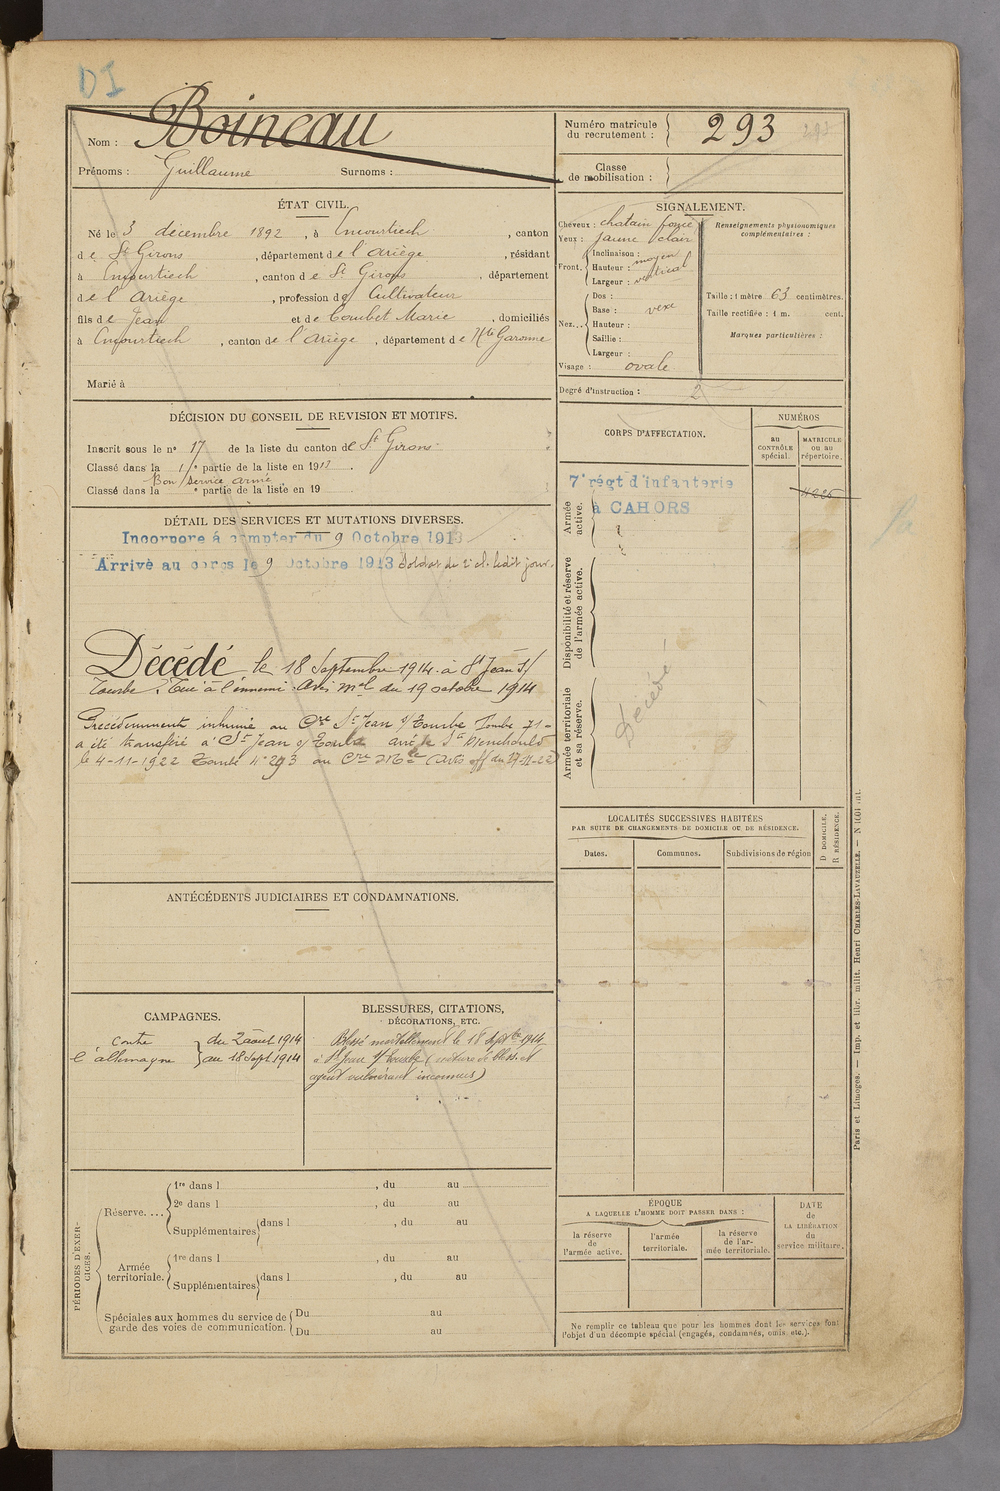 DI
Nom : Boineau
Prénoms : Guillaume Surnoms :
Numéro matricule du recrutement : 293
Classe de mobilisation :
ÉTAT CIVIL.
Né le 3 décembre 1892, à Encourtiech, canton
de St Girons, département de l'Ariège, résidant
à Encourtiech, canton de St Girons, département
de l'Ariège, profession de Cultivateur
fils de Jean et de Coumbet Marie, domiciliés
à Encourtiech, canton de l'Ariège, département de Hte Garonne
Marié à
SIGNALEMENT.
Cheveux : chatain foncé
Yeux : jaune clair
Front. Inclinaison : moyen
Hauteur : vertical
Largeur :
Nez... Dos :
Base : vexe
Hauteur :
Saillie :
Largeur :
Visage : ovale
Renseignements physionomiques complémentaires :
Taille : 1 mètre 63 centimètres.
Taille rectifiée : 1 m. cent.
Marques particulières :
Degré d'instruction : 2
DÉCISION DU CONSEIL DE REVISION ET MOTIFS.
Inscrit sous le no 17 de la liste du canton de St Girons
Classé dans la 1re partie de la liste en 1913.
Bon service armé
Classé dans la e partie de la liste en 19
DÉTAIL DES SERVICES ET MUTATIONS DIVERSES.
Incorpore á compter du 9 Octobre 1913
Arrivè au corps le 9 Octobre 1913 Soldat de 2e cl. ledit jour.
Décédé le 18 Septembre 1914 à St Jean s/
Tourbe. Tué à l'énnemi. Avis mel du 19 octobre 1914
Précédemment inhumé au Cre St Jean s/ Tourbe Tombe 71
a été transféré à St Jean s/ Tourbe arrt de Ste Menehould
le 4-11-1922 Tombe no 293 au Cre Mre (Avis off du 27-11-22)
CORPS D'AFFECTATION.
NUMÉROS
au CONTRÔLE spécial.
MATRICULE ou au répertoire.
Armée active.
7e régt d'infanterie
à CAHORS
Disponibilité et réserve de l'armée active.
Armée territoriale et sa réserve.
Décédé
LOCALITÉS SUCCESSIVES HABITÉES
PAR SUITE DE CHANGEMENTS DE DOMICILE OU DE RÉSIDENCE.
Dates. Communes. Subdivisions de région
D DOMICILE. R RÉSIDENCE.
ANTÉCÉDENTS JUDICIAIRES ET CONDAMNATIONS.
CAMPAGNES.
Contre du 2 août 1914
l'allemagne au 18 Sept. 1914
BLESSURES, CITATIONS,
DÉCORATIONS, ETC.
Blessé mortellement le 18 Septbre 1914
à St Jean s/ tourbe (nature de bless. et
agent vulnérant inconnus)
PÉRIODES D'EXERCICES.
Réserve....
1re dans l , du au
2e dans l , du au
Supplémentaires dans l , du au
du au
Armée territoriale.
1re dans l , du au
Supplémentaires dans l , du au
Spéciales aux hommes du service de garde des voies de communication.
Du au
Du au
ÉPOQUE
A LAQUELLE L'HOMME DOIT PASSER DANS :
la réserve de l'armée active.
l'armée territoriale.
la réserve de l'armée territoriale.
DATE de LA LIBÉRATION du service militaire.
Ne remplir ce tableau que pour les hommes dont les services font
l'objet d'un décompte spécial (engagés, condamnés, omis, etc.).
Paris et Limoges. — Imp. et libr. milit. Henri CHARLES-LAVAUZELLE.